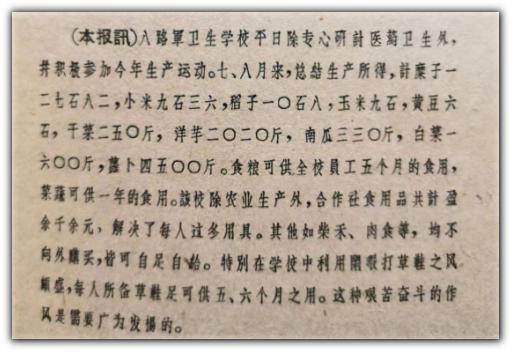 (本报訊)八路軍卫生学校平日除专心研討医葯卫生外，
并积极参加今年生产运动。七、八月来，总結生产所得，計糜子一
二七石八二，小米九石三六，稻子一〇石八，玉米九石，黄豆六
石，干菜二五〇斤，洋芋二〇二〇斤，南瓜三三〇斤，白菜一
六〇〇斤，蘿卜四五〇〇斤。食粮可供全校員工五个月的食用，
菜蔬可供一年的食用。該校除农业生产外，合作社食用品共計盈
余千余元，解决了每人过冬用具。其他如柴禾、肉食等，均不
向外購买，皆可自足自給。特別在学校中利用閒暇打草鞋之风
頗盛，每人所备草鞋足可供五、六个月之用。这种艰苦奋斗的作
风是需要广为发揚的。